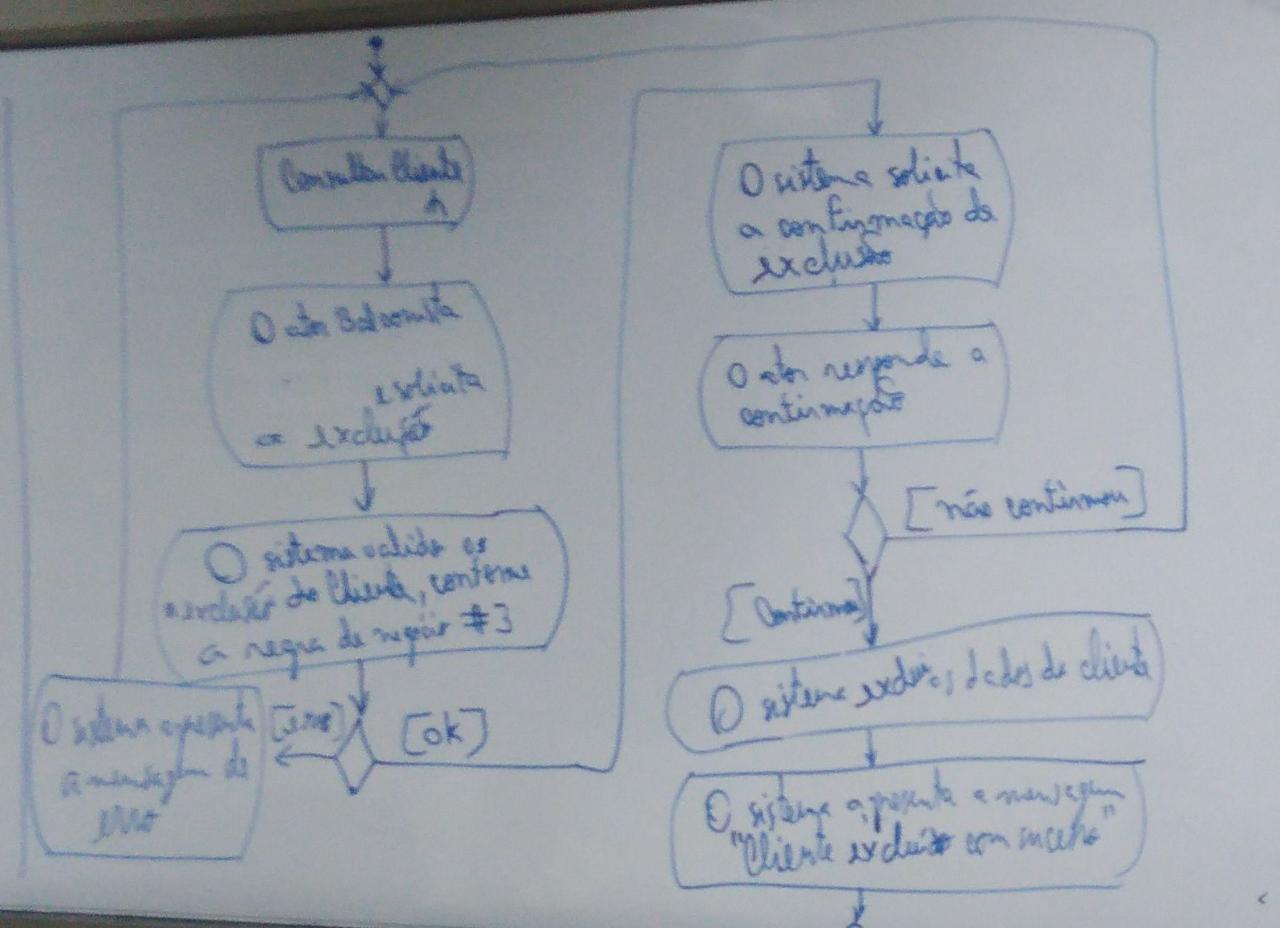 Consultar Cliente
O ator Balconista
e solicita
a exclusão
O sistema valida
exclusão do Cliente, conforme
a regra de negócio #3
[erro]
[ok]
O sistema apresenta
a mensagem de
erro
O sistema solicita
a confirmação da
exclusão
O ator responde a
confirmação
[não confirmou]
[confirma]
O sistema exclui os dados do cliente
O sistema apresenta a mensagem
"Cliente excluido com sucesso"